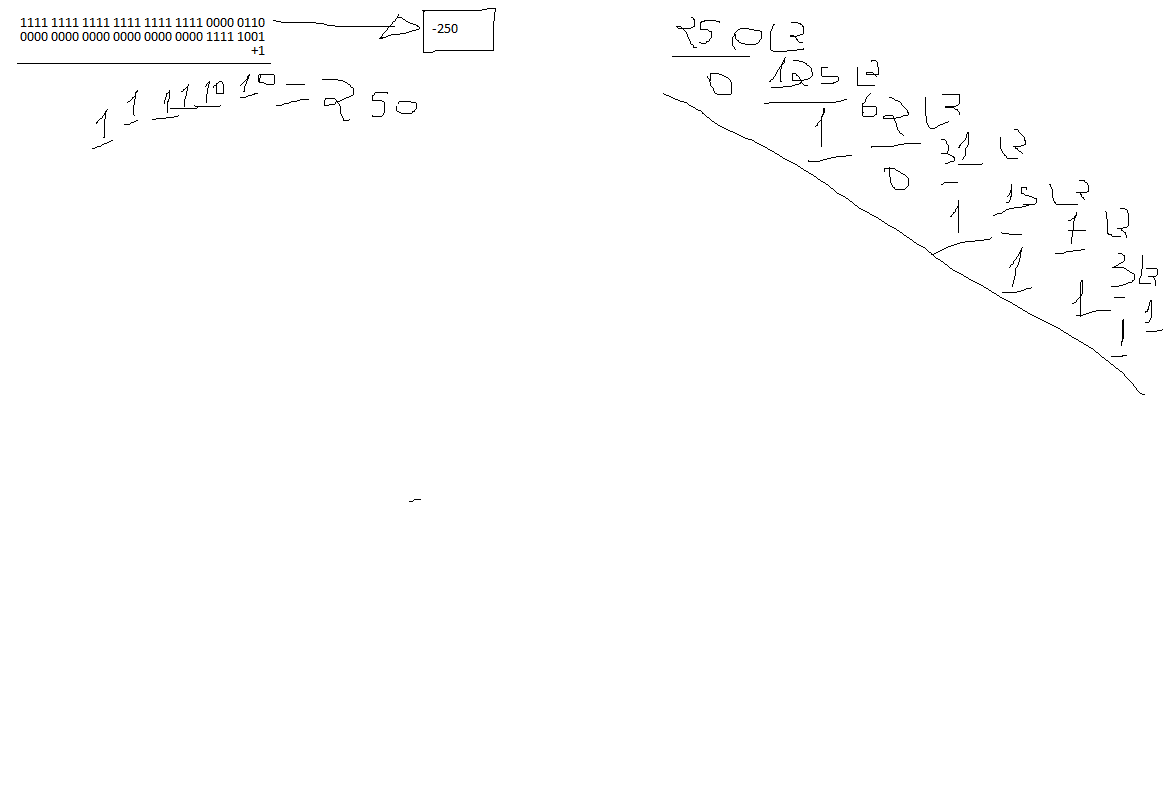 1111 1111 1111 1111 1111 1111 0000 0110
-250
0000 0000 0000 0000 0000 0000 1111 1001
+1
1 1 1 1 1 0 1 0 = 250
250 2
0 125 2
1 62 2
0 31 2
1 15 2
1 7 2
1 3 2
1 1